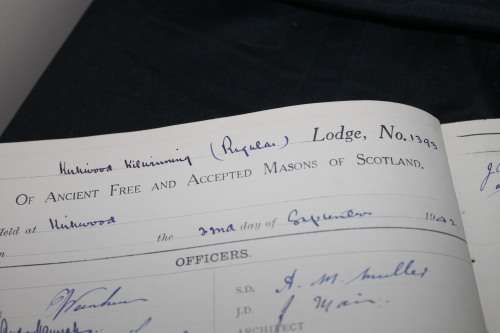 Kirkwood Kilwinning (Regular) Lodge, No. 1395
OF ANCIENT FREE AND ACCEPTED MASONS OF SCOTLAND.
Held at Kirkwood
the 22nd day of September 1942
OFFICERS.
S.D. A. M. Muller
J.D. J Main
ARCHITECT